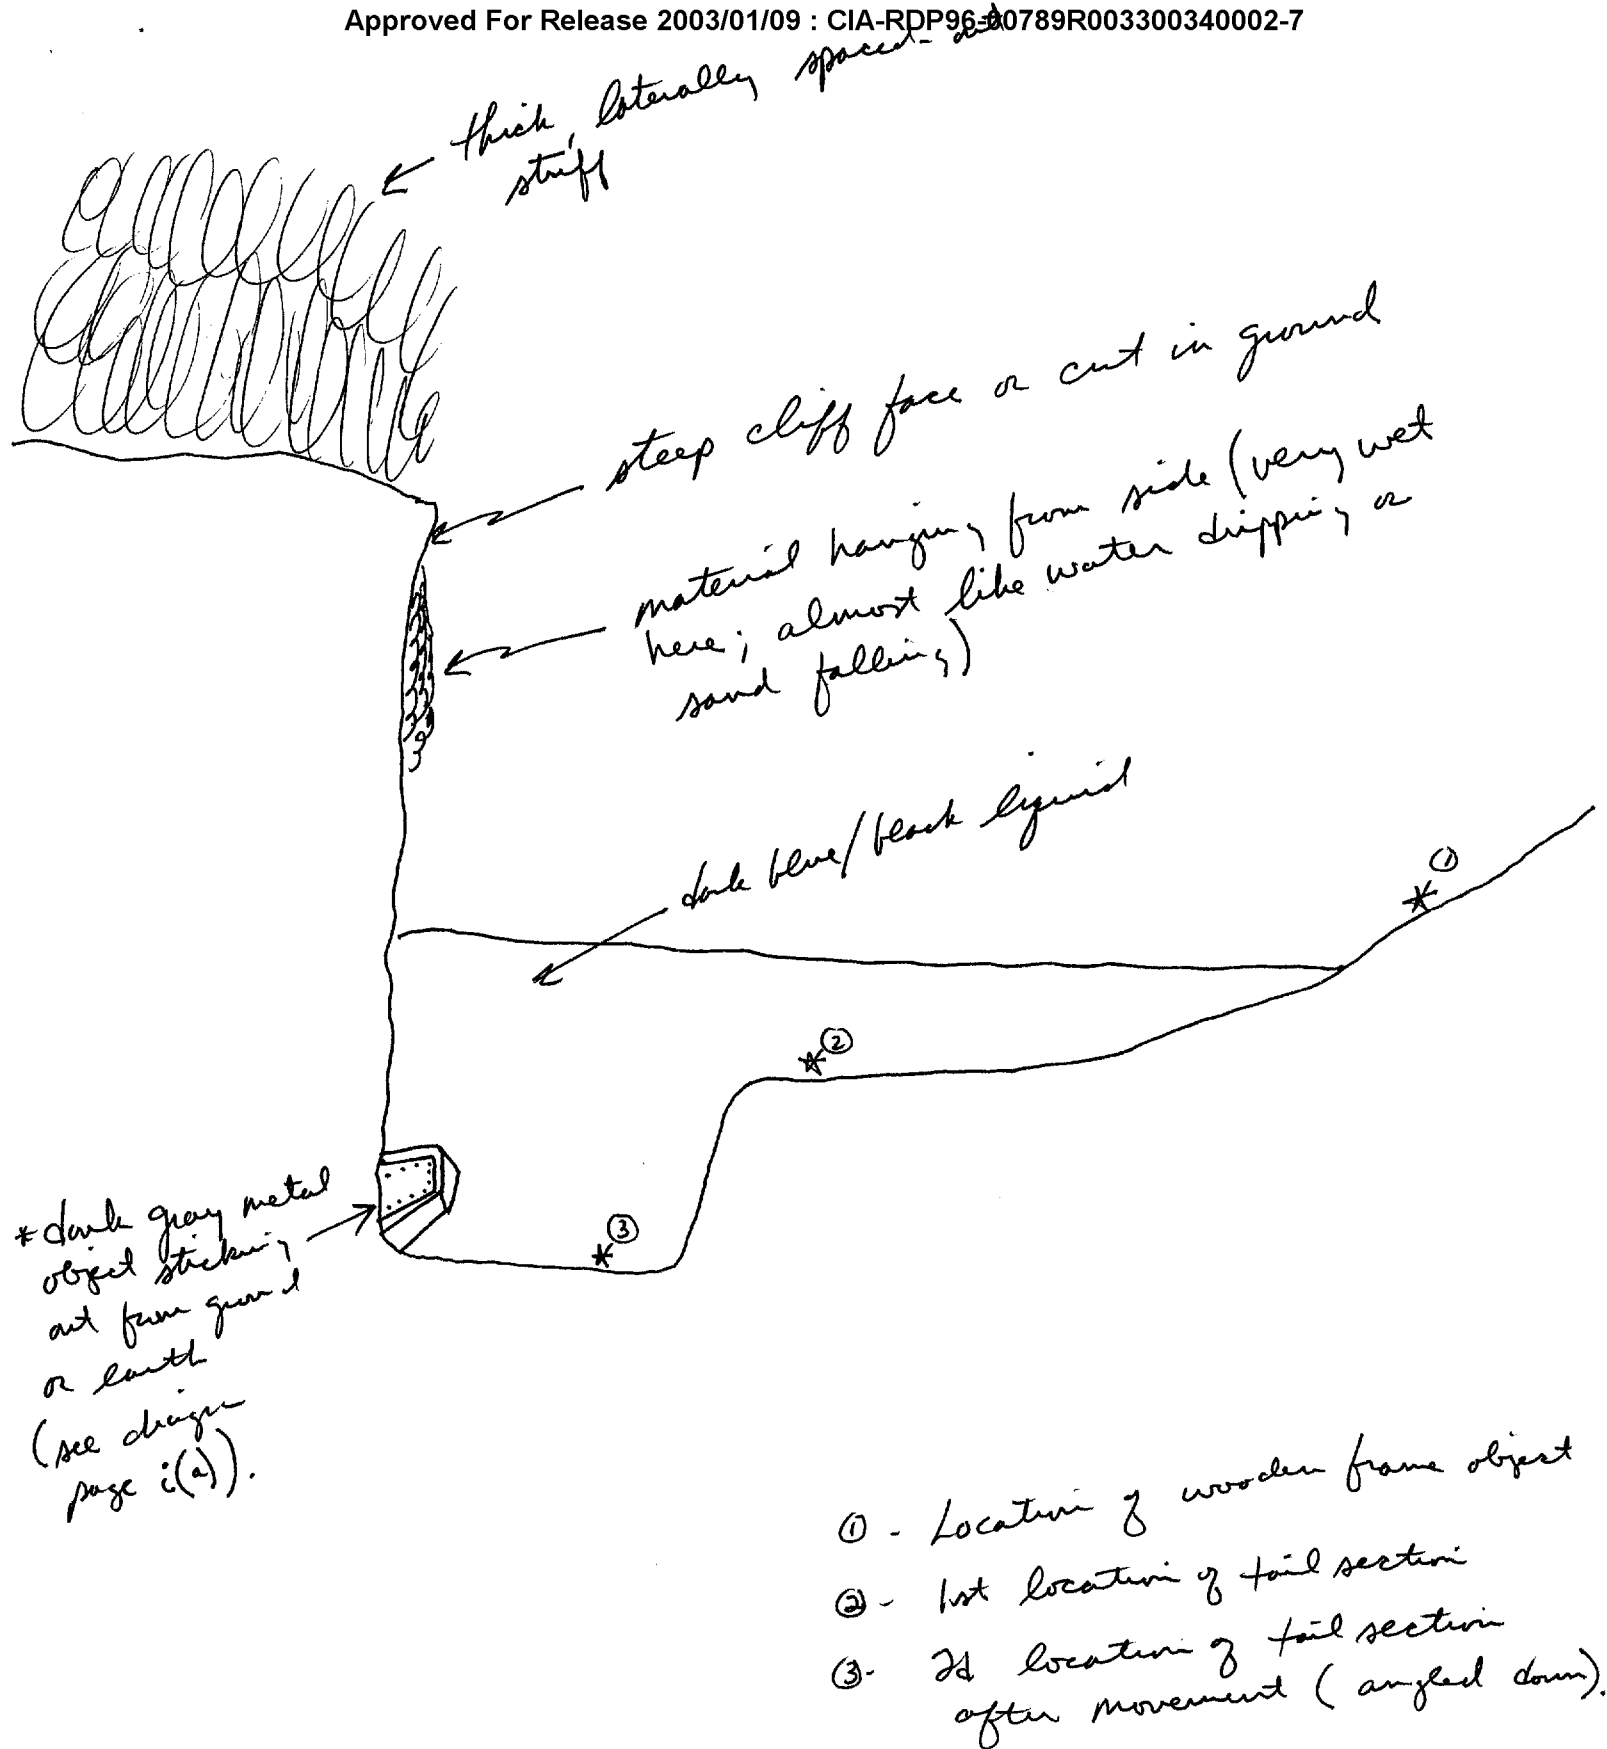 Approved For Release 2003/01/09 : CIA-RDP96-00789R003300340002-7
thick, laterally spaced-out
stuff
steep cliff face or cut in ground
material hanging from side (very wet
here; almost like water dripping or
sand falling)
dark blue/black liquid
①
②
③
* dark gray metal
object sticking
out from ground
or earth
(see
page i(a)).
① - Location of wooden frame object
② - 1st location of tail section
③ - 2d location of tail section
after movement (angled down).